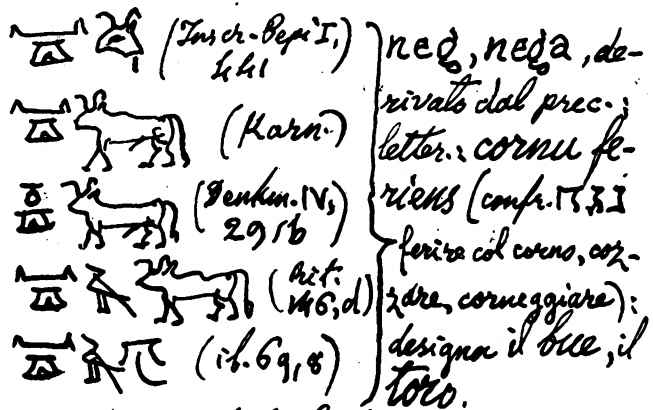 (Inscr. Pepi I,
441
(Karn.)
(Denkm. IV,
29, b)
(Rit.
146, d)
(ib. 69, 8)
neg̥, neg̥a, de-
rivato dal prec.;
letter.: cornu fe-
riens (confr. נגח
ferire col corno, coz-
zare, corneggiare):
designa il bue, il
toro.